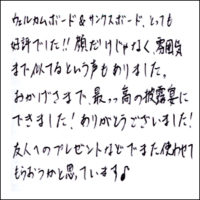 ウェルカムボード&サンクスボード、とっても
好評でした!!顔だけじゃなく雰囲気
まで似てるという声もありました。
おかげさまで、最っ高の披露宴に
できました!ありがとうございました!
友人へのプレゼントなどでまた使わせて
もらおうかと思っています♪